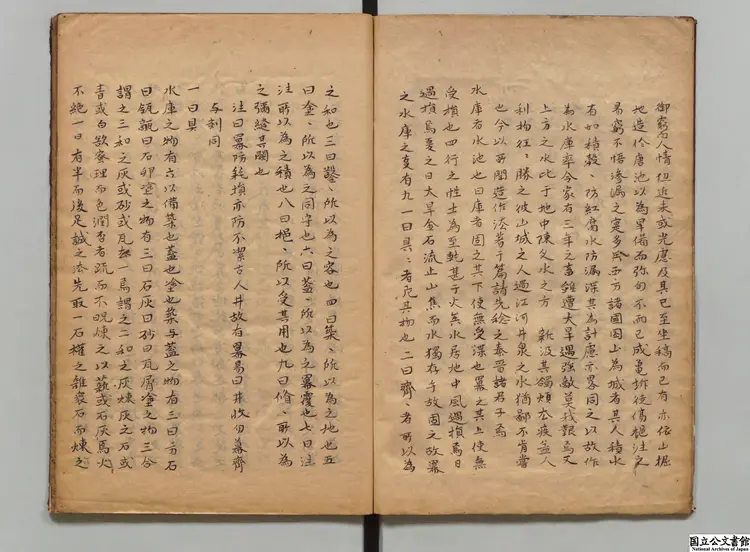 御窮人情狃近未或先慮及其已至坐槁而已有亦依山掘
地造作唐池以為旱備而弥旬不雨已成龜坼徒傷挹注之
易窮不悟滲漏之寔多矣西方諸國因山為城者其人積水
有如積穀、防紅腐水防漏渫其為計慮亦畧同之以故作
為水庫率令家有三年之畜雖遭大旱遇強敵莫我難焉又
上方之水比于地中陳久水之方
新汲其蠲煩去疾益人
利物往、勝之彼山城之人遇江河井泉之水猶鄙不肯嘗
也今以所聞造作法著于篇請先諗之秦晉諸君子焉
水庫者水池也曰庫者固之其下使無受渫也冪之其上使無
受損也四行之性土為至乾甚于火矣水居地中風過損焉日
過損焉夏之日大旱金石流土山焦而水獨存乎故固之故冪
之水庫之事有九一曰具、者庀其物也二曰齊、者所以為
之和也三曰鑿、所以為之容也四曰築、所以為之地也五
曰塗、所以為之固守也六曰蓋、所以為之冪覆也七曰注
注所以為之積也八曰挹、所以受其用也九曰脩、所以為
之彌縫其闕也
注曰冪防耗損亦防不潔古人井故有冪易曰井收勿幕齊
与剤同
一曰具
水庫之物有六以備築也蓋也塗也築与蓋之物有三曰方石
曰瓴甋曰石卵塗之物有三曰石灰曰砂曰瓦屑塗之物三合
謂之三和之灰或砂或瓦無一焉謂之二和之灰煉灰之石或
青或白欲密理而色潤否者疏而不昵煉之以薪或石灰焉火
不絶一日有半而後足試之法先取一石權之雜衆石而煉之
国立公文書館
National Archives of Japan